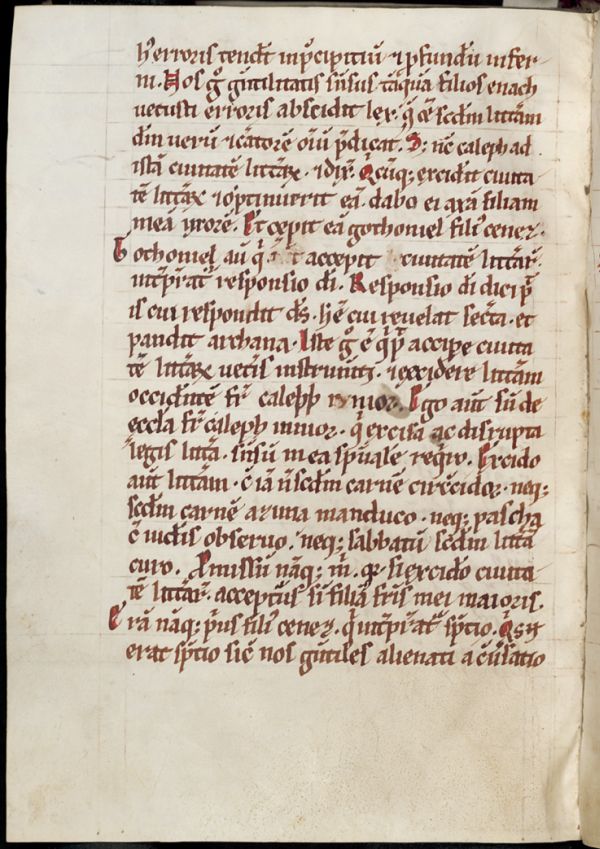 h᷒ erroris tendit in p̄cipitiū ⁊ ꝓfundū infer
ni. Nos g̊ gentilitatis sensus tāquā filios enach
vetusti erroris abscidit lex. q̄ ē scd̄m littām
dm̄ verū ⁊ c̄atorē om̄iū p̄dicat. nc̄ caleph ad
istā civitatē littaꝝ. ⁊ dix̄. Qcūq; excidit civita
tē littaꝝ ⁊ optinuerit eā. dabo ei axā filiam
meā uxorē. Et cepit eā gothoniel fili᷒ cenez.
Gothoniel aū accepit civitatē littaꝝ.
int̄p̄tat᷑ responsio di. Responsio di dici p̄
is cui respondit ds̄. h̄ ē cui revelat sec̄ta. et
pandit archana. Iste g̊ ē accipe civita
tē littaꝝ vet̄is instrum̄ti. ⁊ excidere littām
occidentē fr̄ caleph Ego aut̄ sū de
eccl̄a fr̄ caleph minor. q̄ excisa ac disrupta
legis litt̄a. sensū in ea sp̄uale req̄ro. Excido
aut̄ littām. c̄ iā n̄ scd̄m carnē circ̄cidor. neq;
scd̄m carnē azima manduco. neq; pascha
c̄ iudeis observo. neq; sabbatū scd̄m littā
curo. Amissū nāq; m̄. si excido civita
tē littaꝝ. accept̄us sū filiā fr̄is mei maioris.
Erā nāq; p̄us fili᷒ cenez. q̄ int̄p̄tat᷑ sp̄tio.
erat sp̄tio sic̄ nos gentiles alienati a c̄v̄satio